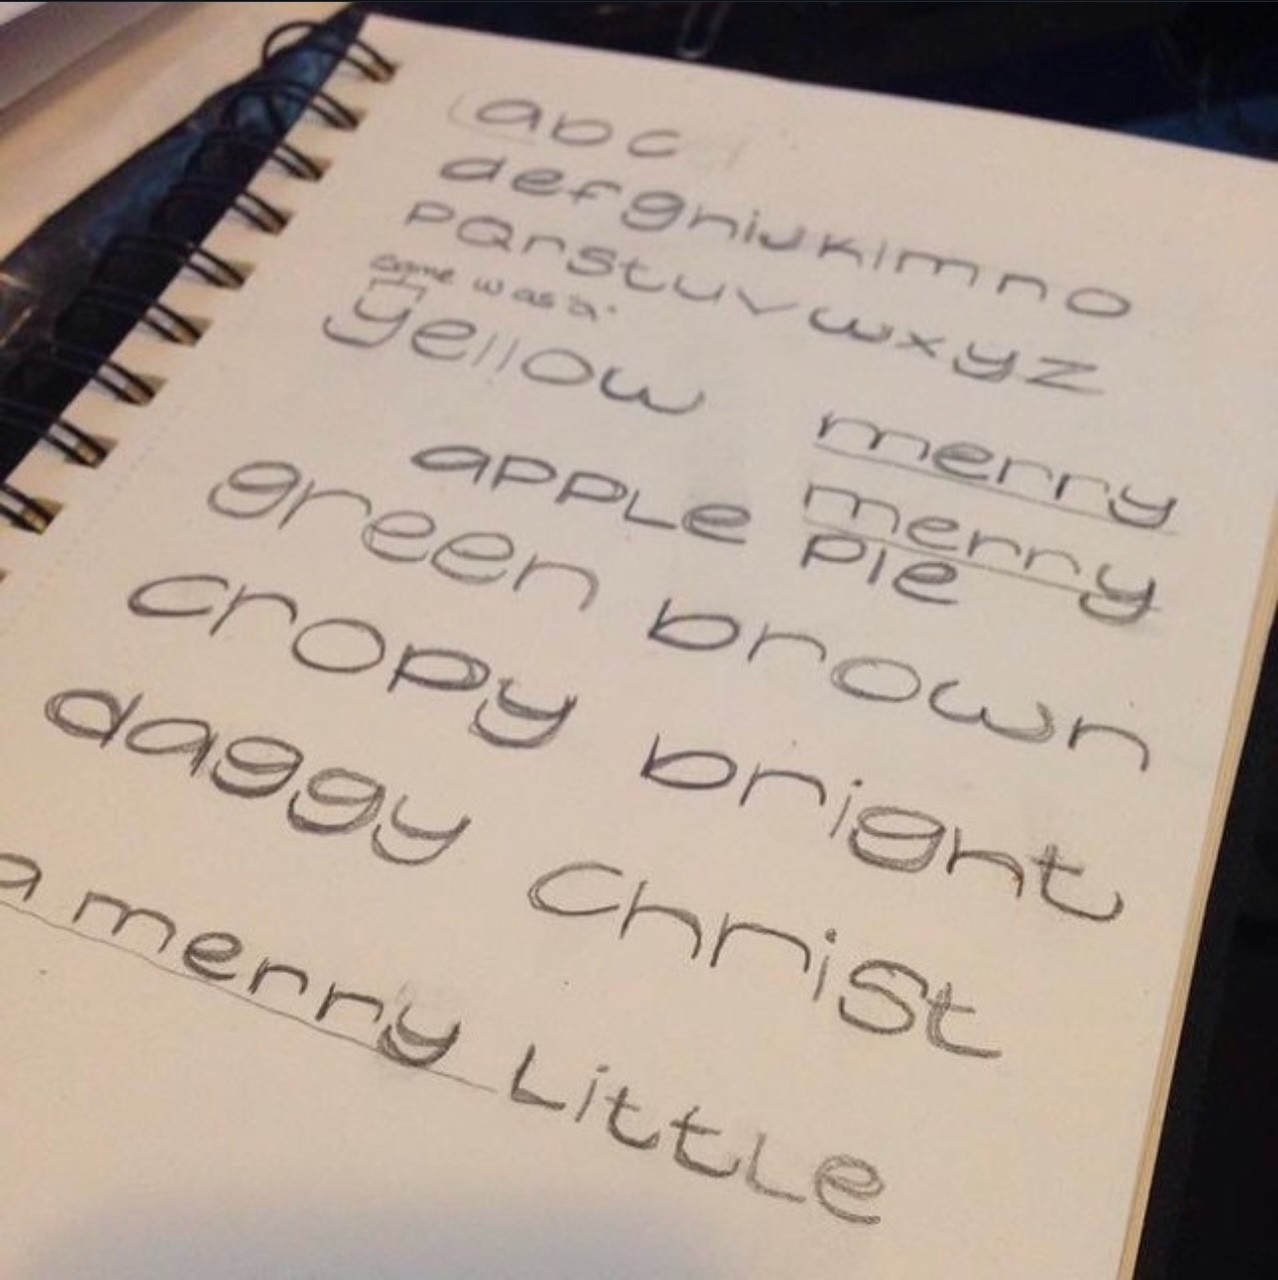 abc
defghijklmno
pqrstuvwxyz
came was a
yellow
merry
apple
merry
pie
green
brown
cropy
bright
daggy
Christ
a merry Little